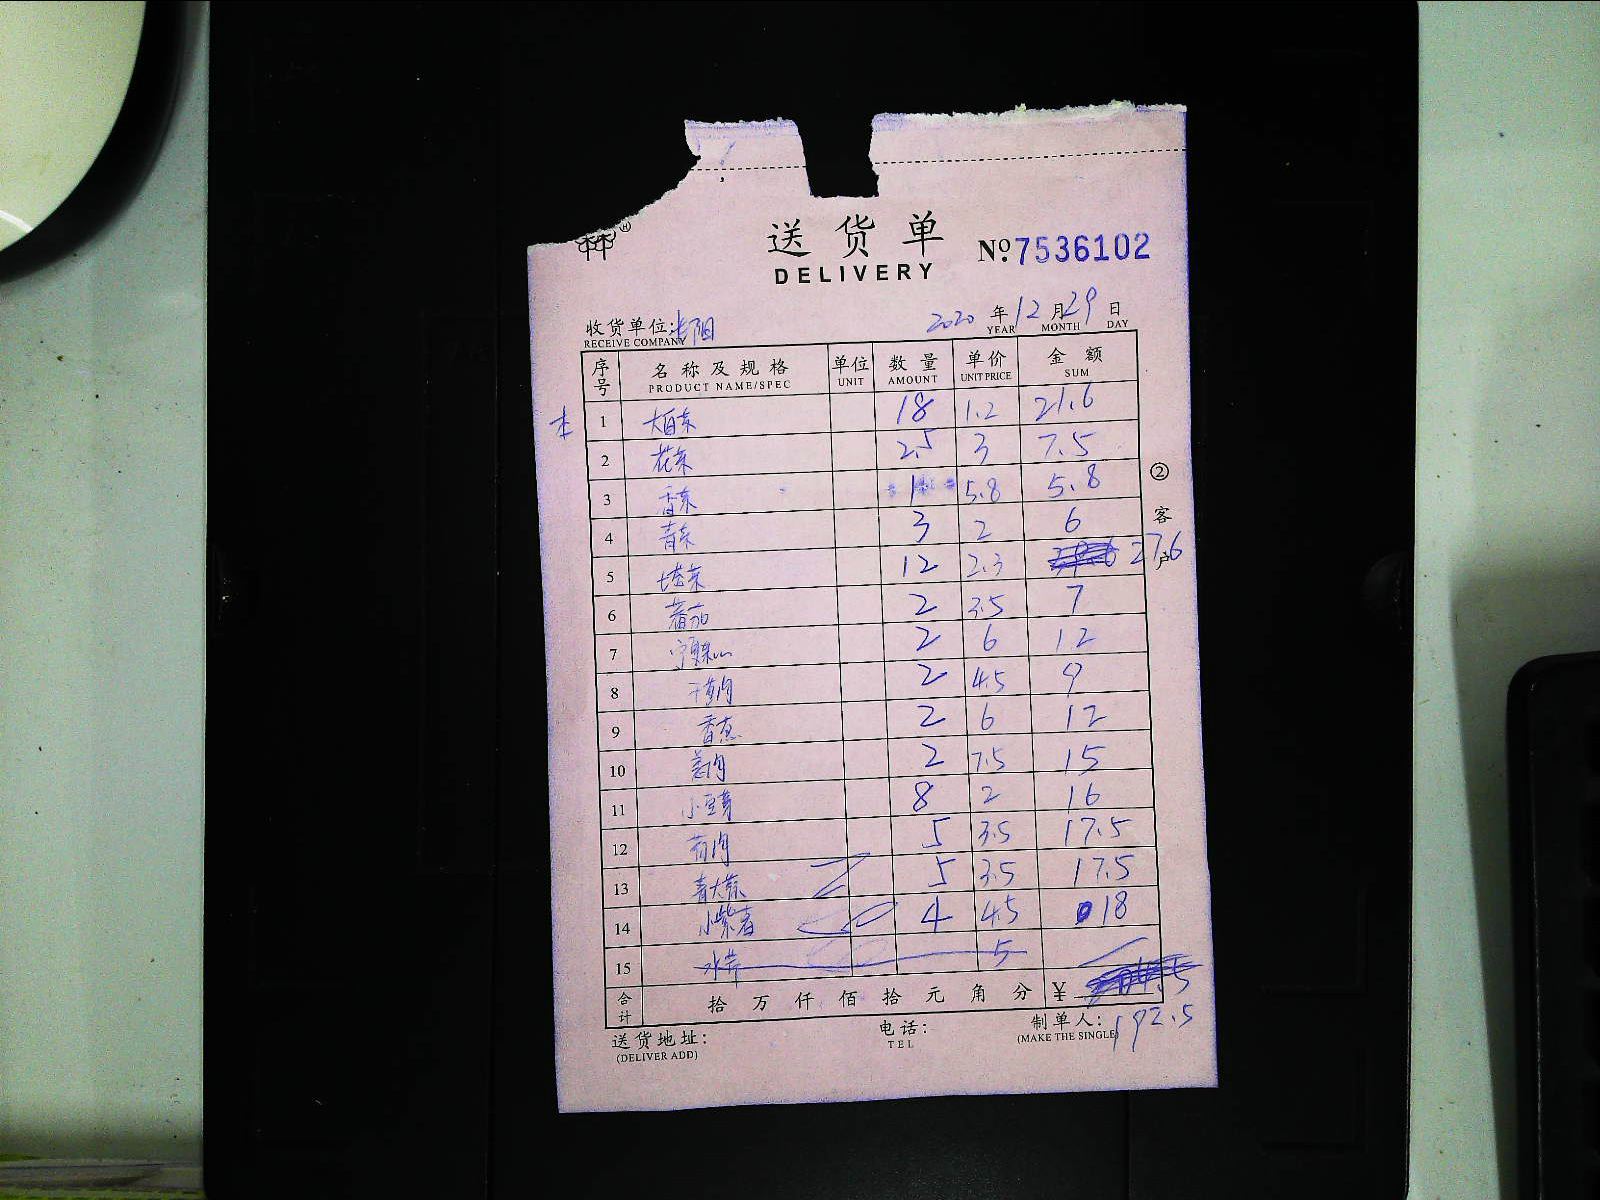 送货单
DELIVERY
No.7536102
收货单位:
RECEIVE COMPANY
2020 年 12 月 29 日
YEAR MONTH DAY
序号 名称及规格 单位 数量 单价 金额
PRODUCT NAME/SPEC UNIT AMOUNT UNIT PRICE SUM
1 大白菜 18 1.2 21.6
2 花菜 2.5 3 7.5
3 香菜 1 5.8 5.8
4 青菜 3 2 6
5 12 2.3 27.6
6 蕃茄 2 3.5 7
7 2 6 12
8 2 4.5 9
9 香葱 2 6 12
10 姜肉 2 7.5 15
11 小豆芽 8 2 16
12 5 3.5 17.5
13 青大蒜 5 3.5 17.5
14 小紫薯 4 4.5 18
15 水芹 5
合计 拾 万 仟 佰 拾 元 角 分 ¥
192.5
送货地址: 电话: 制单人:
(DELIVER ADD) TEL (MAKE THE SINGLE)
② 客户